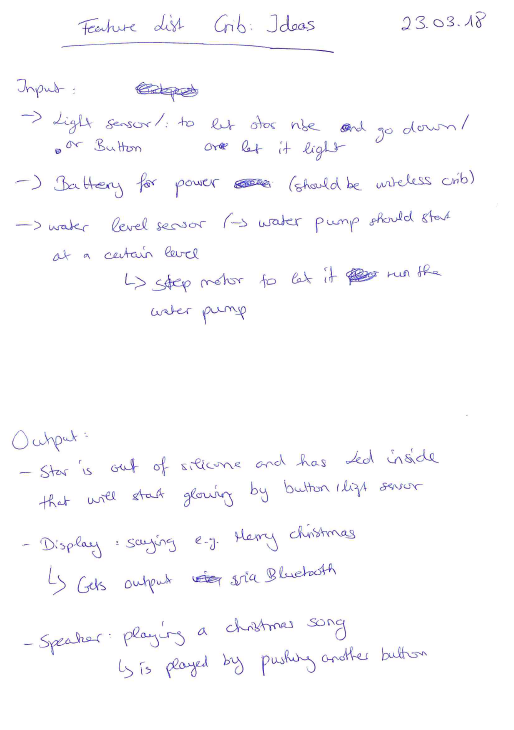 Feature List Crib: Ideas 23.03.18
Input:
-> Light sensor/: to let star rise and go down/
or Button or let it light
-> Battery for power (should be wireless crib)
-> water level sensor (-> water pump should start
at a certain level
↳ step motor to let it run the
water pump
Output:
- Star is out of silicone and has Led inside
that will start glowing by button / light sensor
- Display: saying e.g. Merry christmas
↳ Gets output via Bluetooth
- Speaker: playing a christmas song
↳ is played by pushing another button